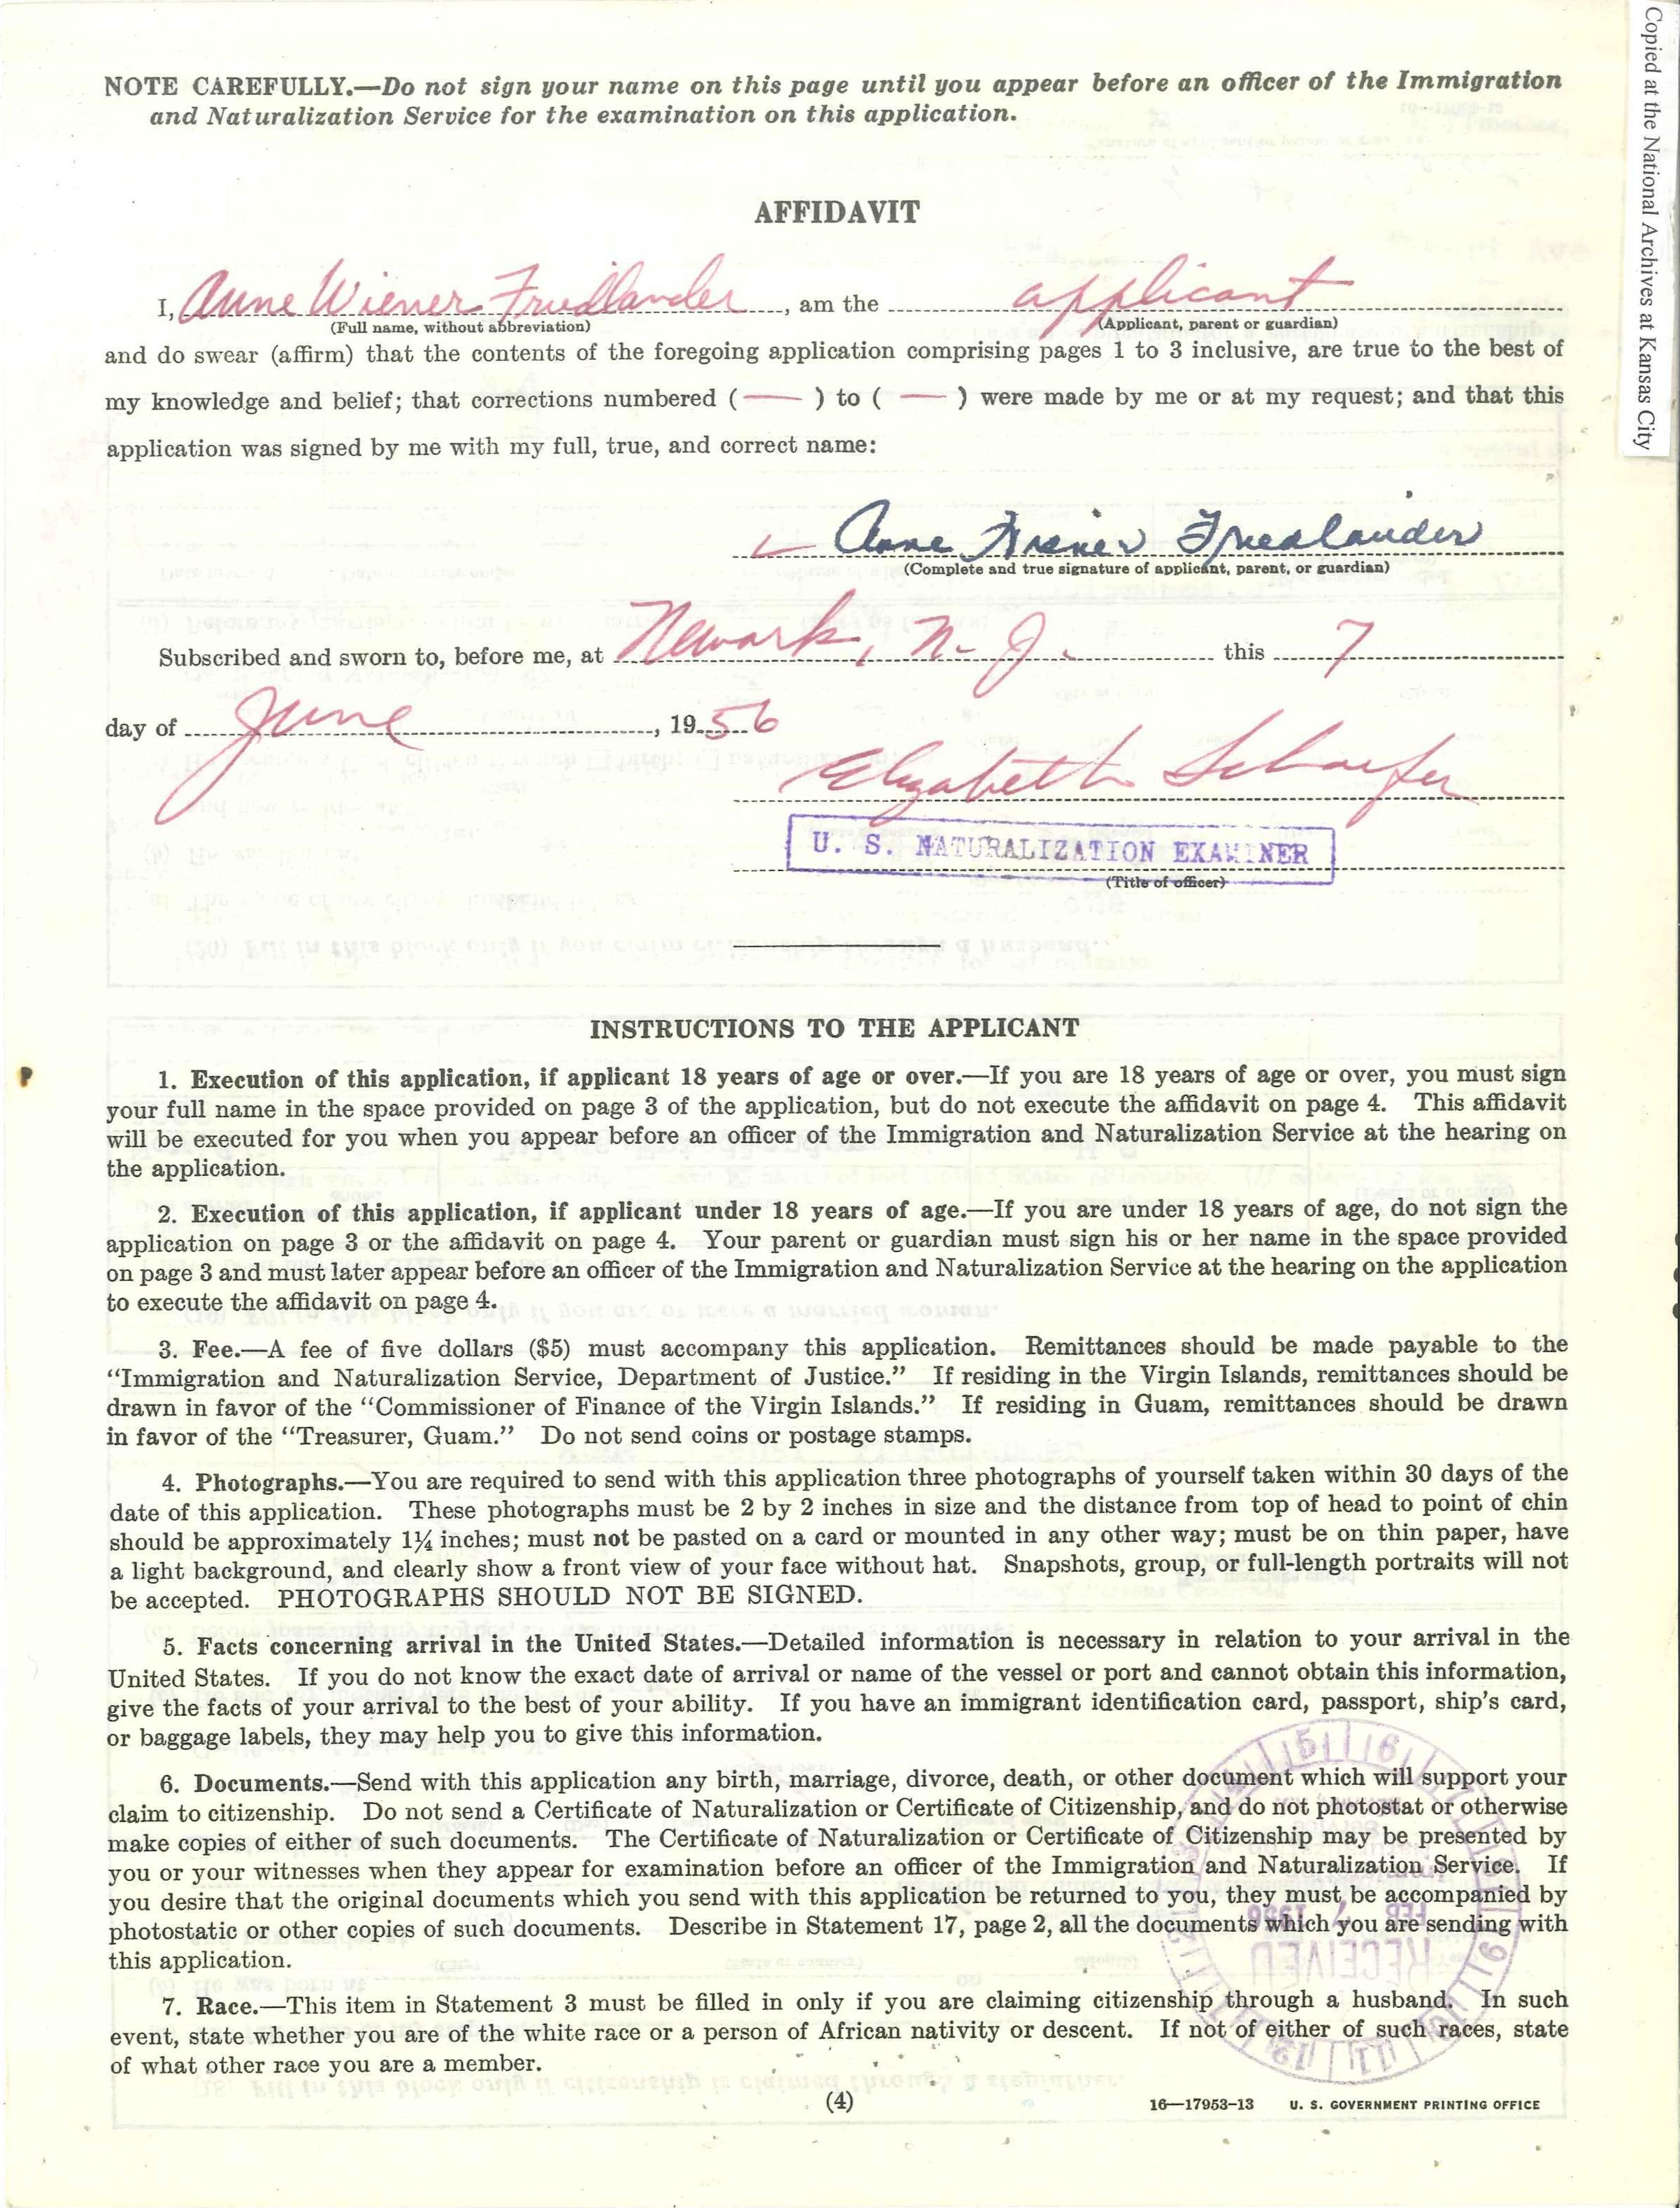 Copied at the National Archives at Kansas City
NOTE CAREFULLY.—Do not sign your name on this page until you appear before an officer of the Immigration
and Naturalization Service for the examination on this application.
AFFIDAVIT
I, Anne Wiener Friedlander, am the applicant
(Full name, without abbreviation) (Applicant, parent or guardian)
and do swear (affirm) that the contents of the foregoing application comprising pages 1 to 3 inclusive, are true to the best of
my knowledge and belief; that corrections numbered ( — ) to ( — ) were made by me or at my request; and that this
application was signed by me with my full, true, and correct name:
Anne Wiener Friedlander
(Complete and true signature of applicant, parent, or guardian)
Subscribed and sworn to, before me, at Newark, N. J. this 7
day of June, 1956
Elizabeth Schaefer
U. S. NATURALIZATION EXAMINER
(Title of officer)
INSTRUCTIONS TO THE APPLICANT
1. Execution of this application, if applicant 18 years of age or over.—If you are 18 years of age or over, you must sign
your full name in the space provided on page 3 of the application, but do not execute the affidavit on page 4. This affidavit
will be executed for you when you appear before an officer of the Immigration and Naturalization Service at the hearing on
the application.
2. Execution of this application, if applicant under 18 years of age.—If you are under 18 years of age, do not sign the
application on page 3 or the affidavit on page 4. Your parent or guardian must sign his or her name in the space provided
on page 3 and must later appear before an officer of the Immigration and Naturalization Service at the hearing on the application
to execute the affidavit on page 4.
3. Fee.—A fee of five dollars ($5) must accompany this application. Remittances should be made payable to the
“Immigration and Naturalization Service, Department of Justice.” If residing in the Virgin Islands, remittances should be
drawn in favor of the “Commissioner of Finance of the Virgin Islands.” If residing in Guam, remittances should be drawn
in favor of the “Treasurer, Guam.” Do not send coins or postage stamps.
4. Photographs.—You are required to send with this application three photographs of yourself taken within 30 days of the
date of this application. These photographs must be 2 by 2 inches in size and the distance from top of head to point of chin
should be approximately 1¼ inches; must not be pasted on a card or mounted in any other way; must be on thin paper, have
a light background, and clearly show a front view of your face without hat. Snapshots, group, or full-length portraits will not
be accepted. PHOTOGRAPHS SHOULD NOT BE SIGNED.
5. Facts concerning arrival in the United States.—Detailed information is necessary in relation to your arrival in the
United States. If you do not know the exact date of arrival or name of the vessel or port and cannot obtain this information,
give the facts of your arrival to the best of your ability. If you have an immigrant identification card, passport, ship’s card,
or baggage labels, they may help you to give this information.
6. Documents.—Send with this application any birth, marriage, divorce, death, or other document which will support your
claim to citizenship. Do not send a Certificate of Naturalization or Certificate of Citizenship, and do not photostat or otherwise
make copies of either of such documents. The Certificate of Naturalization or Certificate of Citizenship may be presented by
you or your witnesses when they appear for examination before an officer of the Immigration and Naturalization Service. If
you desire that the original documents which you send with this application be returned to you, they must be accompanied by
photostatic or other copies of such documents. Describe in Statement 17, page 2, all the documents which you are sending with
this application.
7. Race.—This item in Statement 3 must be filled in only if you are claiming citizenship through a husband. In such
event, state whether you are of the white race or a person of African nativity or descent. If not of either of such races, state
of what other race you are a member.
(4)
16—17953-13 U. S. GOVERNMENT PRINTING OFFICE